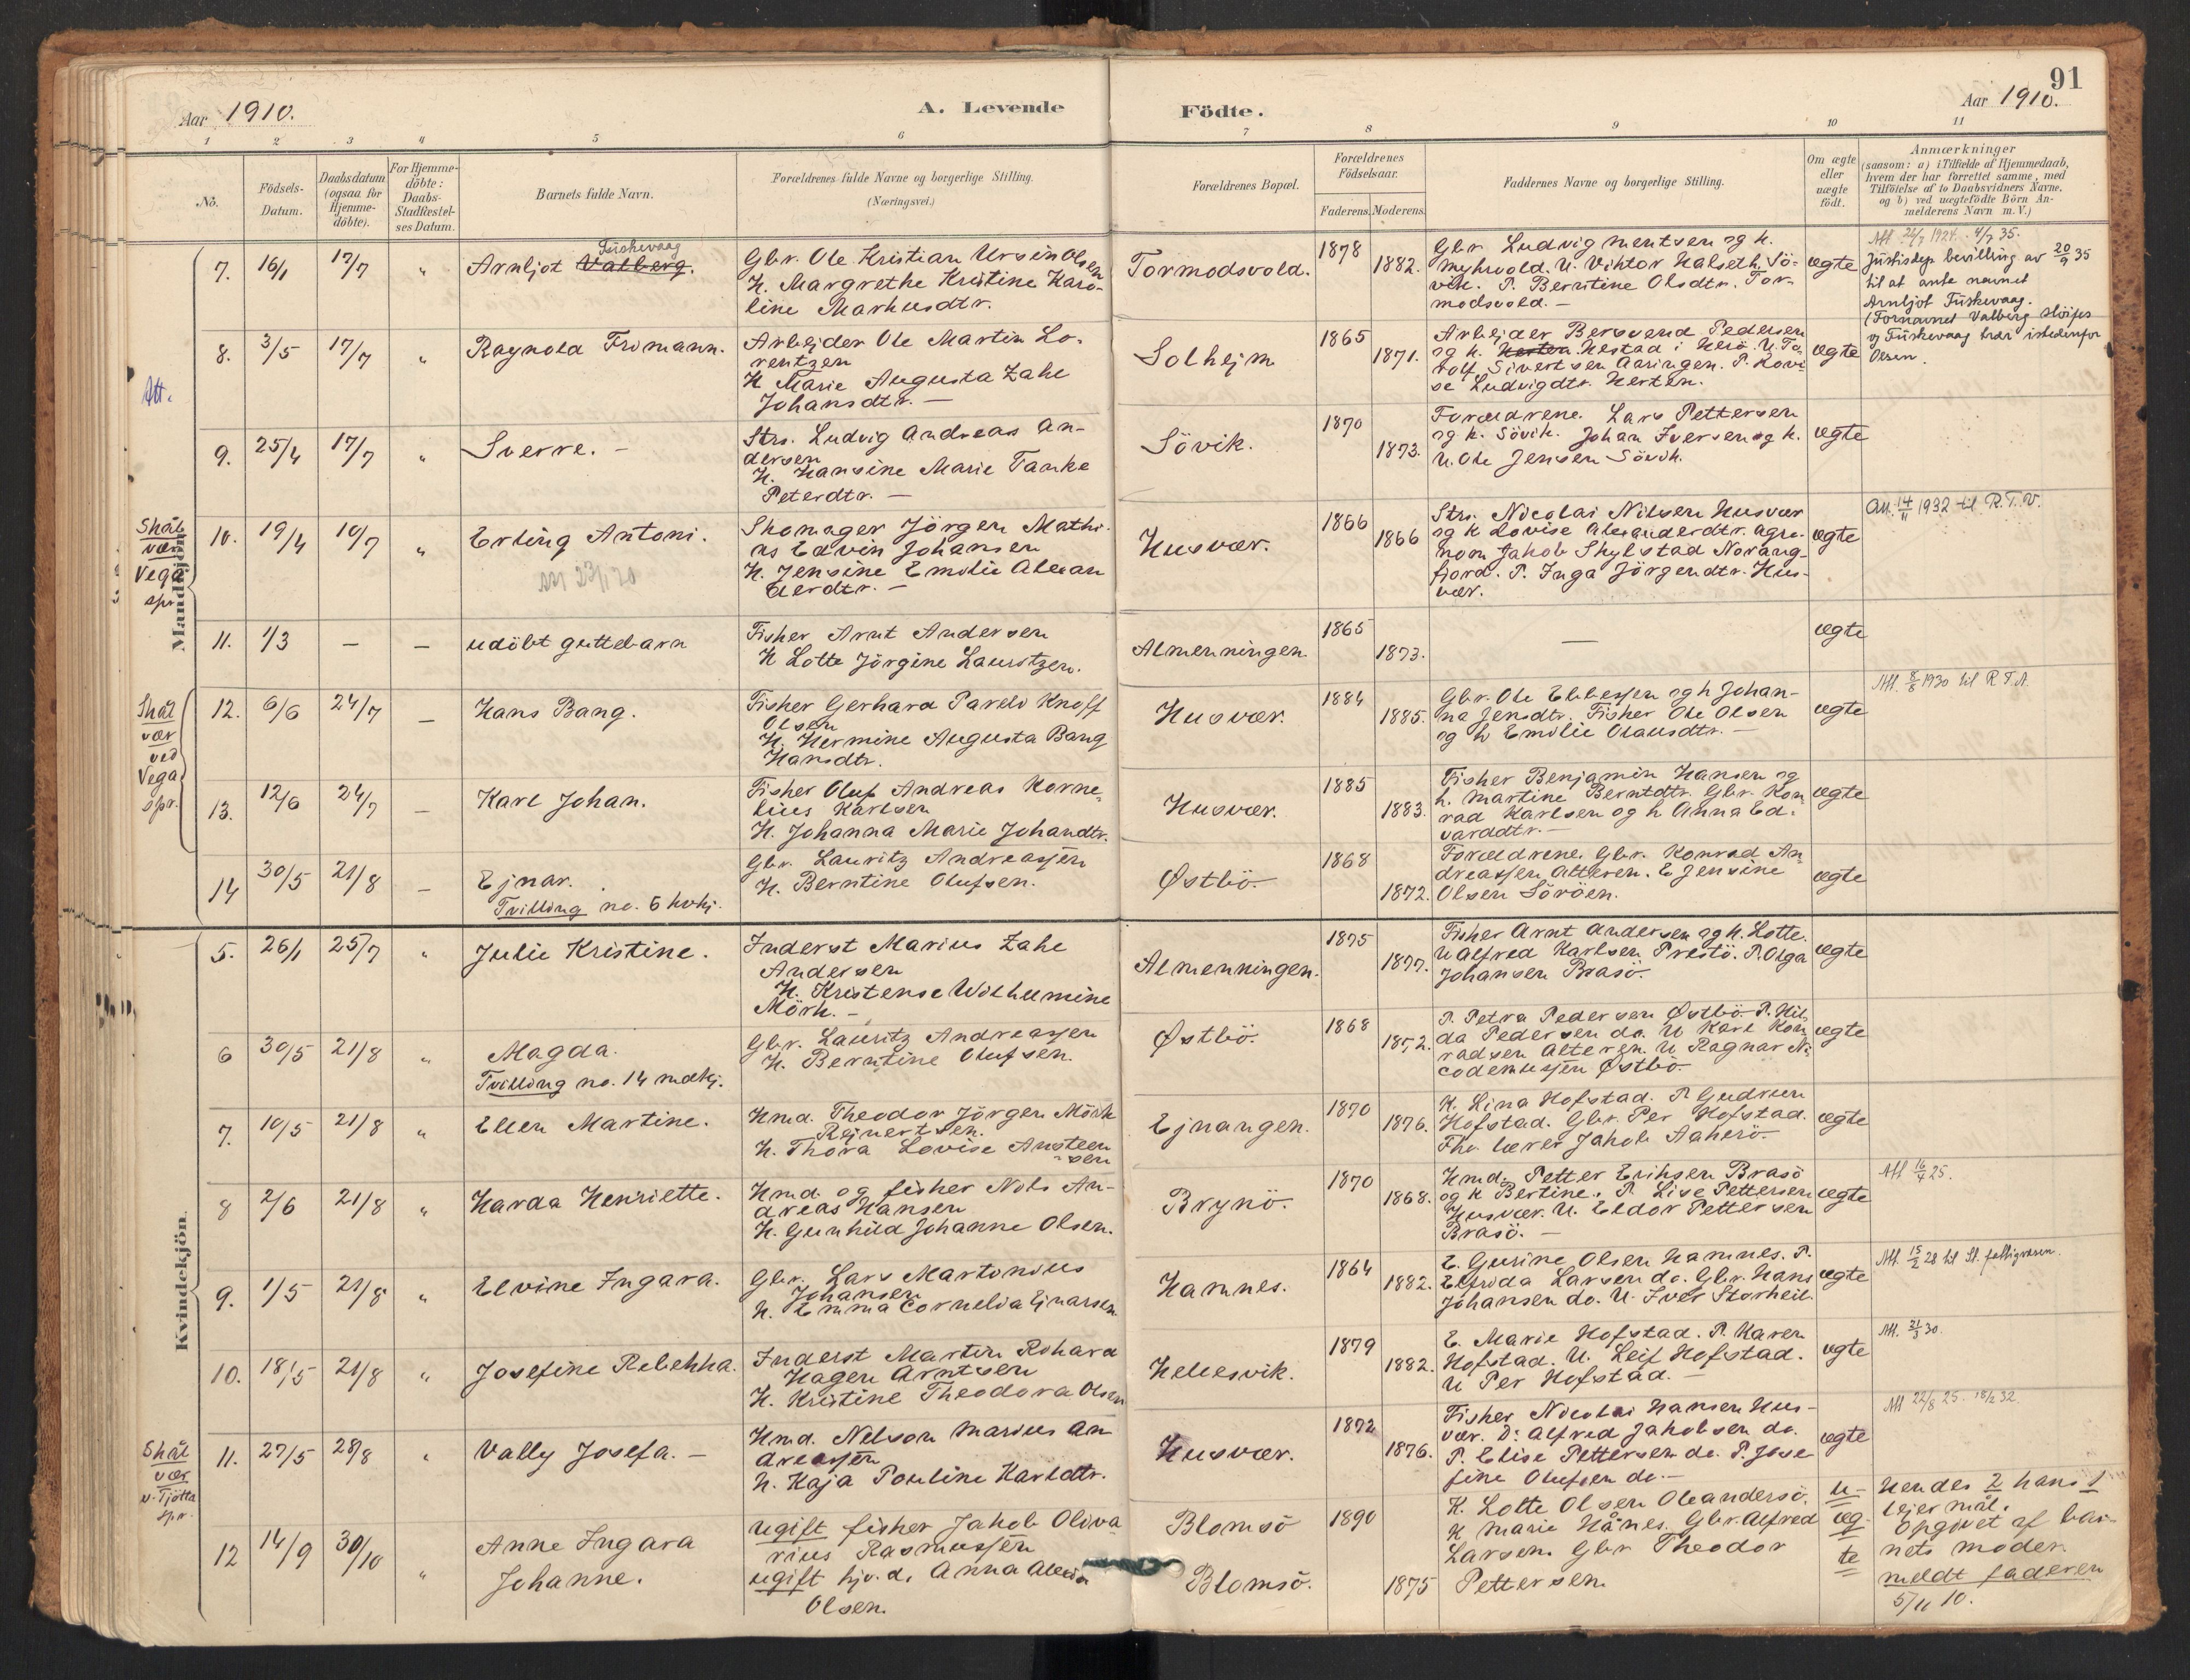 91
Aar 1910.
A. Levende
Födte.
Aar 1910.
1 2 3 4 5 6 7 8 9 10 11
No.
Födsels-
Datum.
Daabsdatum
(ogsaa for
Hjemme-
döbte).
For Hjemme-
döbte:
Daabs-
Stadfæstel-
ses Datum.
Barnets fulde Navn.
Forældrenes fulde Navne og borgerlige Stilling.
(Næringsvei.)
Forældrenes Bopæl.
Forældrenes
Födselsaar.
Faderens. Moderens.
Faddernes Navne og borgerlige Stilling.
Om ægte
eller
uægte
födt.
Anmærkninger
(saasom: a) i Tilfælde af Hjemmedaab,
hvem der har forrettet samme, med
Tilföielse af to Daabsvidners Navne.
og b) ved uægtefödte Börn An-
melderens Navn m. V.)
Mandkjön.
7. 16/1 17/7 "
Fiskevaag
Arnljot Valberg.
Gbr. Ole Kristian Ursin Olsen
H. Margrethe Kristine Karo-
line Markusdtr.
Tormodsvold.
1878
1882.
Gbr. Ludvig Mentsen og h.
Myhrvold. U. Viktor Halseth. Sö-
vik. P. Berntine Olsdtr. Tor-
modsvold. —
ægte
Att 24/7 1924. 4/7 35.
Justisdep bevilling av 20/9 35
til at anta navnet
Arnljot Fiskevaag.
(Fornavnet Valberg slöifes
og Fiskevaag trær istedenfor
Olsen.
8. 3/5 17/7 "
Att.
Ragnola Fromann.
Arbejder Ole Martin Lo-
rentzen
H Marie Augusta Zahl
Johansdtr. —
Solhejm
1865
1871.
Arbejder Bersvend Pedersen
og h. Herten. Hestad i Herö. U. To-
rolf Sivertsen Aaringen. P. Lovi-
se Ludvigdtr. Herten.
ægte
9. 25/4 17/7 "
Sverre. —
Strs. Ludvig Andreas An-
dersen
H. Hansine Marie Tanke
Peterdtr. —
Sövik.
1870
1873.
Forældrene. Lars Pettersen
og h. Sövik. Johan Iversen og h.
U. Ole Jensen Sövik.
ægte
Skål
vær
Vega
spr.
10. 19/4 10/7 "
Erling Antoni.
Skomager Jörgen Mathi-
as Edvin Johansen
H. Jensine Emilie Alexan
derdtr. —
Husvær.
1866
1866
Strs. Nicolai Nilsen Husvær
og h Lovise Alexanderdtr. Agro-
nom Jakob Skylstad Norang-
fjord. P. Inga Jörgendtr. Hus-
vær.
ægte
Att. 14/11 1932 til R.T.V.
11. 1/3 — —
udöbt guttebarn
Fisker Arnt Andersen
H Lotte Jörgine Lauritzen.
Almenningen
1865
1873.
—
ægte
Skål
vær
ved
Vega
spr.
12. 6/6 24/7 —
Hans Bang.
Fisker Gerhard Parelo Knoff
Olsen
H. Hermine Augusta Bang
Hansdtr.
Husvær.
1884
1885.
Gbr. Ole Ellefsen og h Johan-
na Jensdtr. Fisker Ole Olsen
og h Emilie Olausdtr. —
ægte
Att. 8/8 1930 til R.T.A.
13. 12/6 24/7 —
Karl Johan.
Fisker Oluf Andreas Korne-
lius Karlsen
H. Johanna Marie Johandtr.
Husvær.
1885
1883.
Fisker Benjamin Hansen og
h. Martine Berntdtr. Gbr. Kon
rad Karlsen og h Anna Ed-
varddtr. —
ægte
14 30/5 21/8 —
Ejnar.
Tvilling no. 6 kvkj.
Gbr. Lauritz Andreassen
H. Berntine Olufsen.
Østbö.
1868
1872.
Forældrene. Gbr. Konrad An
dreassen Alteren. E Jensine
Olsen Söröen.
ægte
Kvindekjön.
5. 26/1 25/7 "
Julie Kristine.
Inderst Marius Zahl
Andersen
H. Kristense Wilhelmine
Mörk. —
Almenningen.
1875
1877.
Fisker Arnt Andersen og h. Lotte.
U Alfred Karlsen Prestö. P. Olga
Johansen Brasö.
ægte
6 30/5 21/8 "
Magda.
Tvilling no. 14 mdkj.
Gbr. Lauritz Andreassen
H. Berntine Olufsen.
Østbö.
1868
1872.
P. Petra Pedersen Østbö. P. Hil-
da Pedersen do. U Karl Kon
radsen Alteren. U Ragnar Ni
codemussen Østbö
ægte
7. 10/5 21/8 "
Ellen Martine.
Hmd. Theodor Jörgen Mörk
Rejnertsen.
H. Thora Lovise Ansteen
sen
Ejnangen.
1870
1876.
K. Lina Hofstad. P Gudrun
Hofstad. Gbr. Per Hofstad.
Fhv. lærer Jakob Aakerö.
ægte
8 2/6 21/8 "
Harda Henriette.
Hmd. og fisker Nils An-
dreas Hansen
H. Gunhild Johanne Olsen.
Brynö.
1870
1868.
Hmd. Petter Eriksen Brasö
og h Bertine. P. Lise Pettersen
Husvær. U. Eldor Pettersen
Brasö. —
ægte
Att 16/4 25.
9. 1/5 21/8 "
Elvine Ingara.
Gbr. Lars Martonius
Johansen
H. Emma Cornelia Ejnarsen
Hamnes.
1864
1882.
E. Gurine Olsen Hamnes. P.
Elfrida Larsen do. Gbr. Hans
Johansen do. U. Iver Storheil.
ægte
Att. 15/2 28 til St. fattigvæsen.
10. 18/5 21/8 "
Josefine Rebekka.
Inderst Martin Rohard
Hagen Arntsen
H. Kristine Theodora Olsen
Hellesvik.
1879
1882.
E. Marie Hofstad. P. Karen
Hofstad. U. Leif Hofstad.
U Per Hofstad. —
ægte
Att. 21/3 30.
Skål
vær
v. Tjötta
spr.
11. 27/5 28/8 "
Vally Josefa. —
Hmd. Nelson Marius An
dreassen
H. Kaja Pouline Karldtr.
Husvær.
1872
1876.
Fisker Nicolai Hansen Hus-
vær. Do Alfred Jakobsen do.
P. Elise Pettersen do. P. Jose
fine Olufsen do. —
ægte
Att 22/8 25. 18/2 32
12 14/9 30/10 "
Anne Ingara
Johanne.
ugift fisker Jakob Oliva
rius Rasmussen
ugift hjv. d. Anna Alvida
Olsen.
Blomsö
Blomsö.
1890
1875
K. Lotte Olsen Oleandersö.
K Marie Hånes. Gbr. Alfred
Larsen. Gbr Theodor
Pettersen
u-
æg-
te
Hendes 2 hans 1
lejermål.
Opgivet af bar-
nets moder.
meldt faderen
5/11 10.